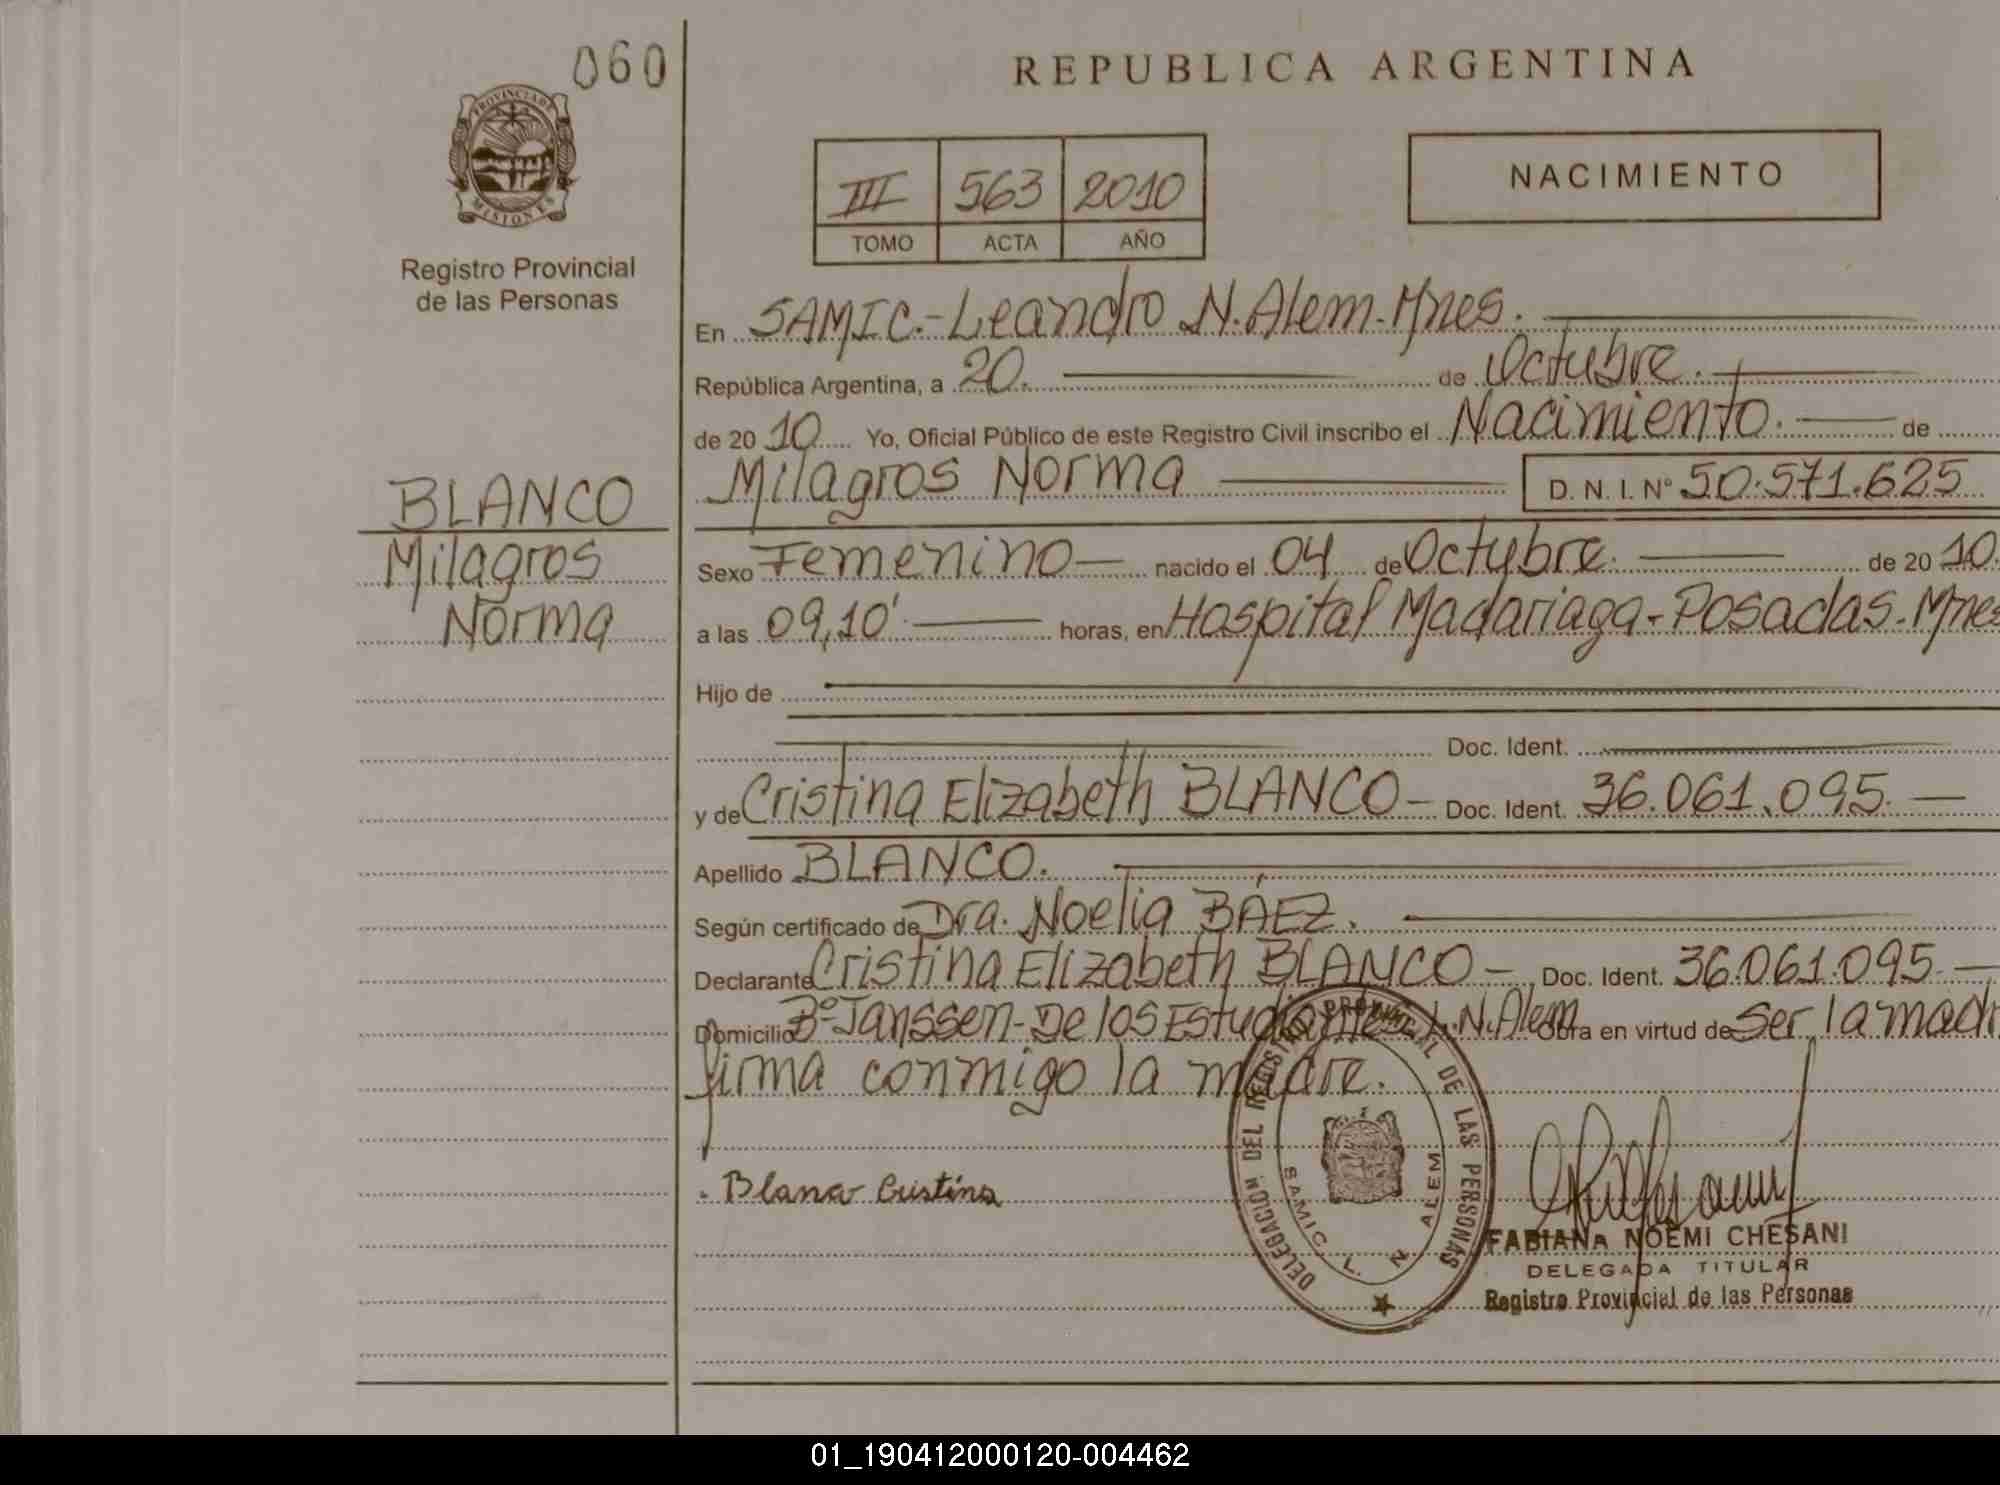 060
REPUBLICA ARGENTINA
PROVINCIA DE
MISIONES
Registro Provincial
de las Personas
III 563 2010
TOMO ACTA AÑO
NACIMIENTO
En SAMIC.-Leandro N. Alem-Mnes.
República Argentina, a 20. de Octubre.
de 2010 Yo, Oficial Público de este Registro Civil inscribo el Nacimiento. de
Milagros Norma D. N. I. Nº 50.571.625
BLANCO
Milagros
Norma
Sexo Femenino nacido el 04 de Octubre. de 2010.
a las 09,10' horas, en Hospital Madariaga-Posadas-Mnes
Hijo de
Doc. Ident.
y de Cristina Elizabeth BLANCO Doc. Ident. 36.061.095.
Apellido BLANCO.
Según certificado de Dra. Noelia BÁEZ.
Declarante Cristina Elizabeth BLANCO Doc. Ident. 36.061.095.
Domicilio Bº Janssen-De los Estudiantes L.N.Alem Obra en virtud de Ser la madr
firma conmigo la madre.
Blanco Cristina
DELEGACION DEL REGISTRO PROVINCIAL DE LAS PERSONAS
SAMIC L. N. ALEM
FABIANA NOEMI CHESANI
DELEGADA TITULAR
Registro Provincial de las Personas
01_190412000120-004462